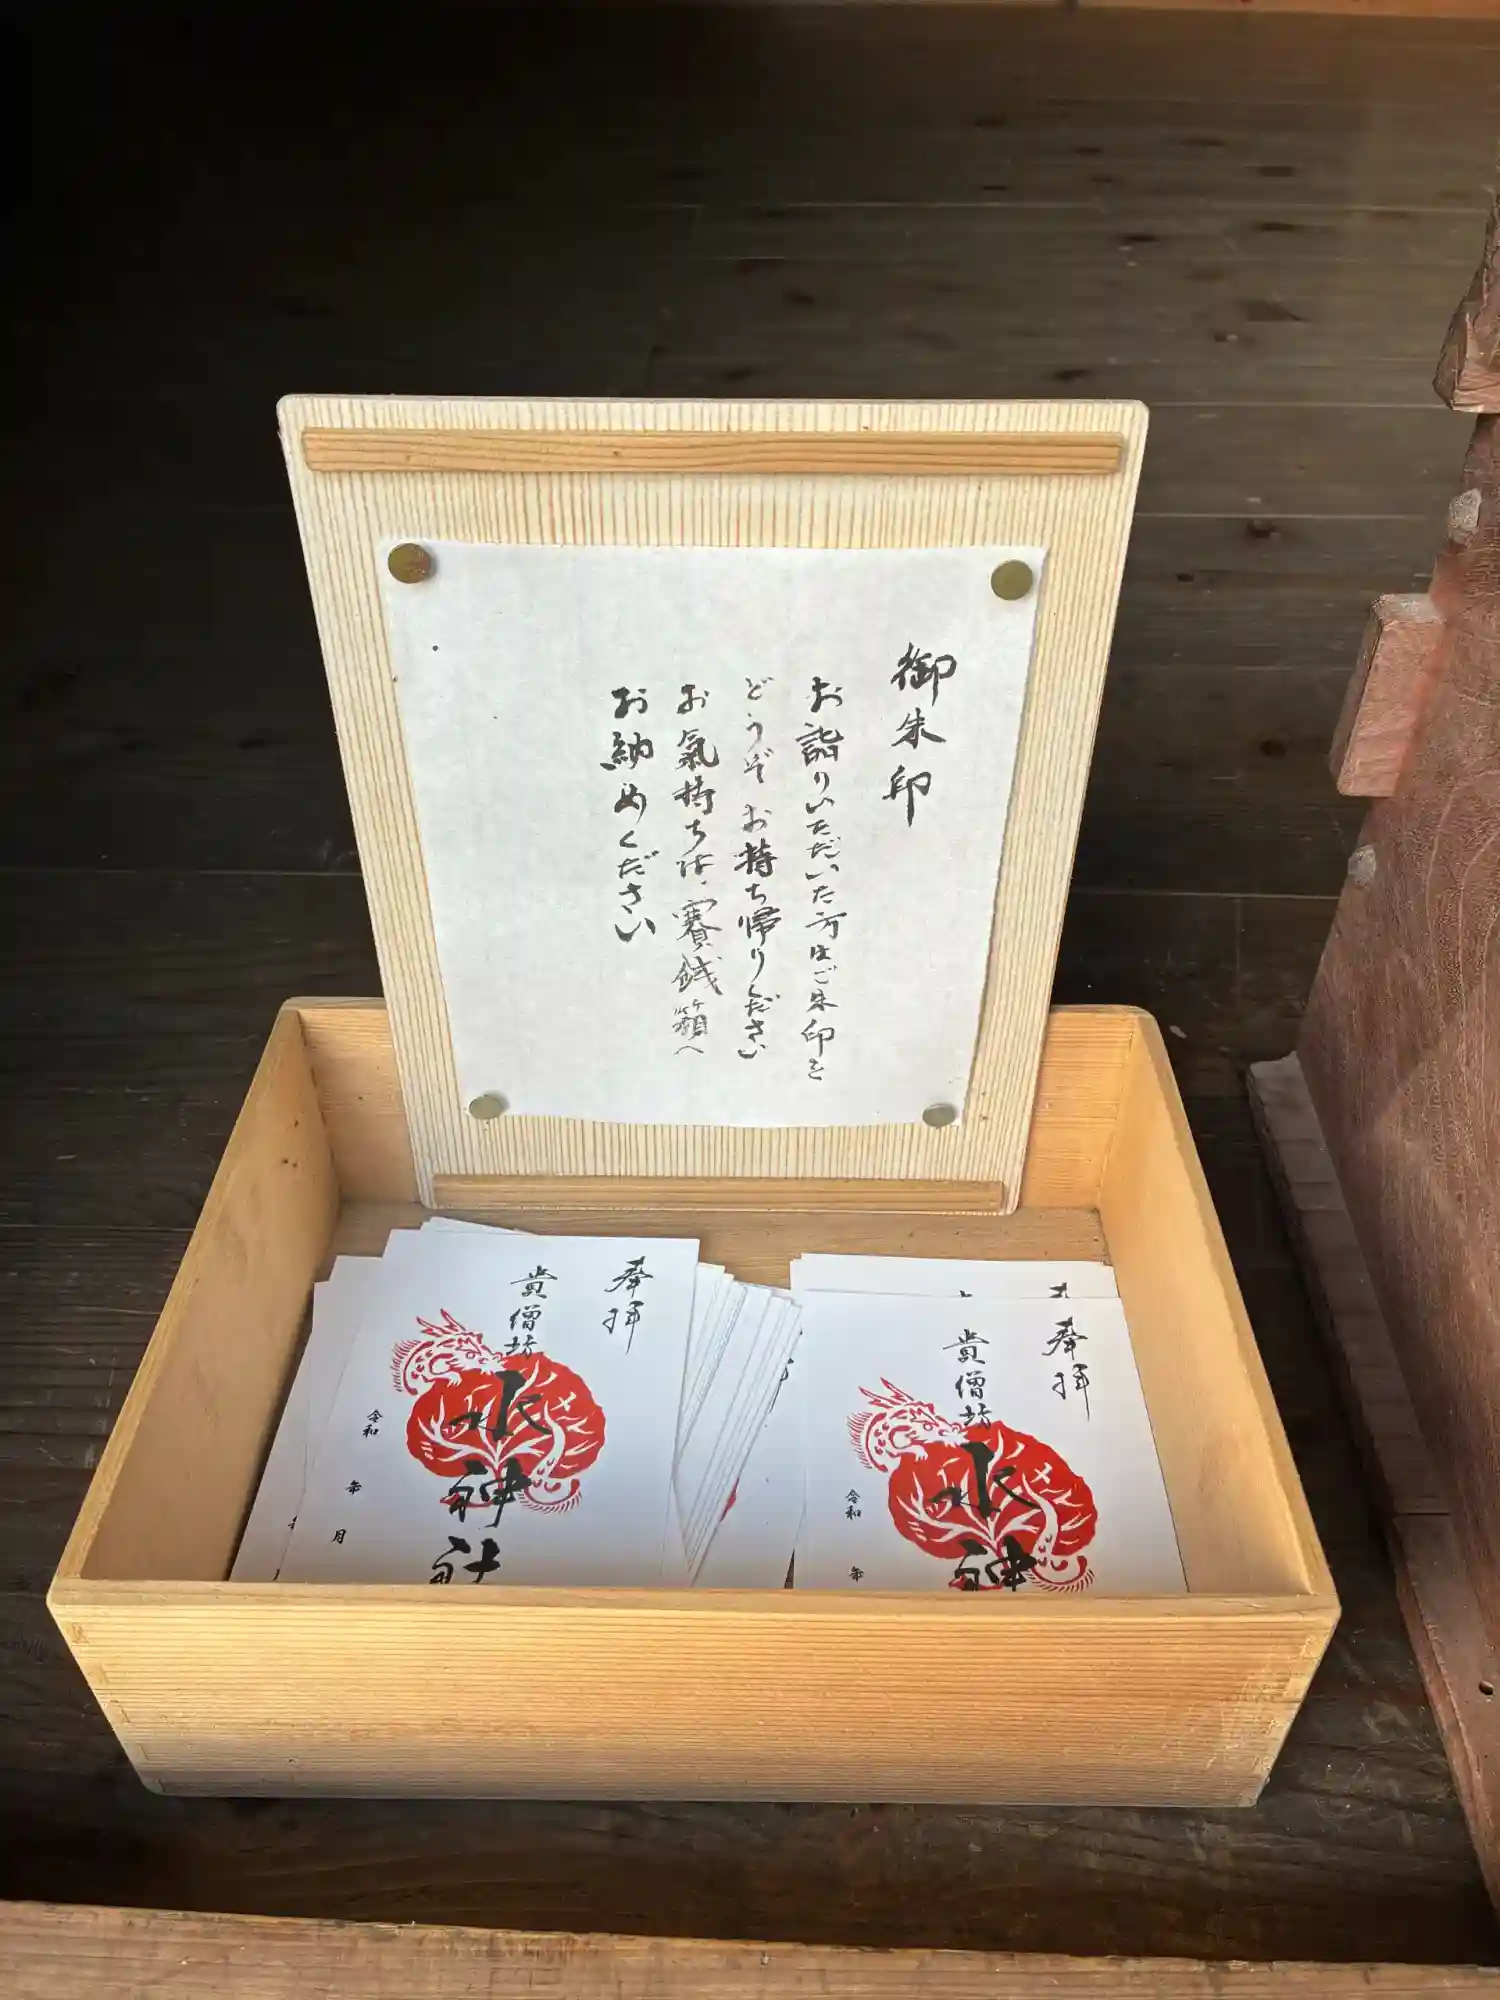 御朱印
お詣りいただいた方はご朱印を
どうぞお持ち帰りください
お氣持ちは、賽銭箱へ
お納めください
奉拝
貴僧坊
水神社
令和
年
月
奉拝
貴僧坊
水神
令和
年